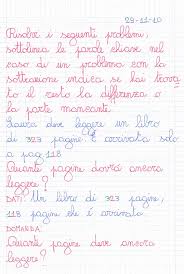 29-11-10
Risolvi i seguenti problemi,
sottolinea le parole chiave nel
caso di un problema con la
sottrazione indica se hai trova
to il resto la differenza o
la parte mancante.
Laura deve leggere un libro
di 323 pagine. È arrivata solo
a pag. 118
Quante pagine dovrà ancora
leggere?
DATI: Un libro di 323 pagine,
118 pagine che è arrivata.
DOMANDA
Quante pagine deve ancora
leggere?